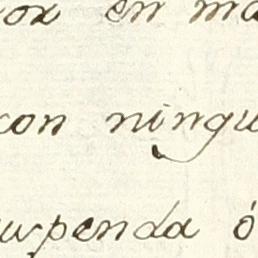 por en ma
con ningu
suspenda ó